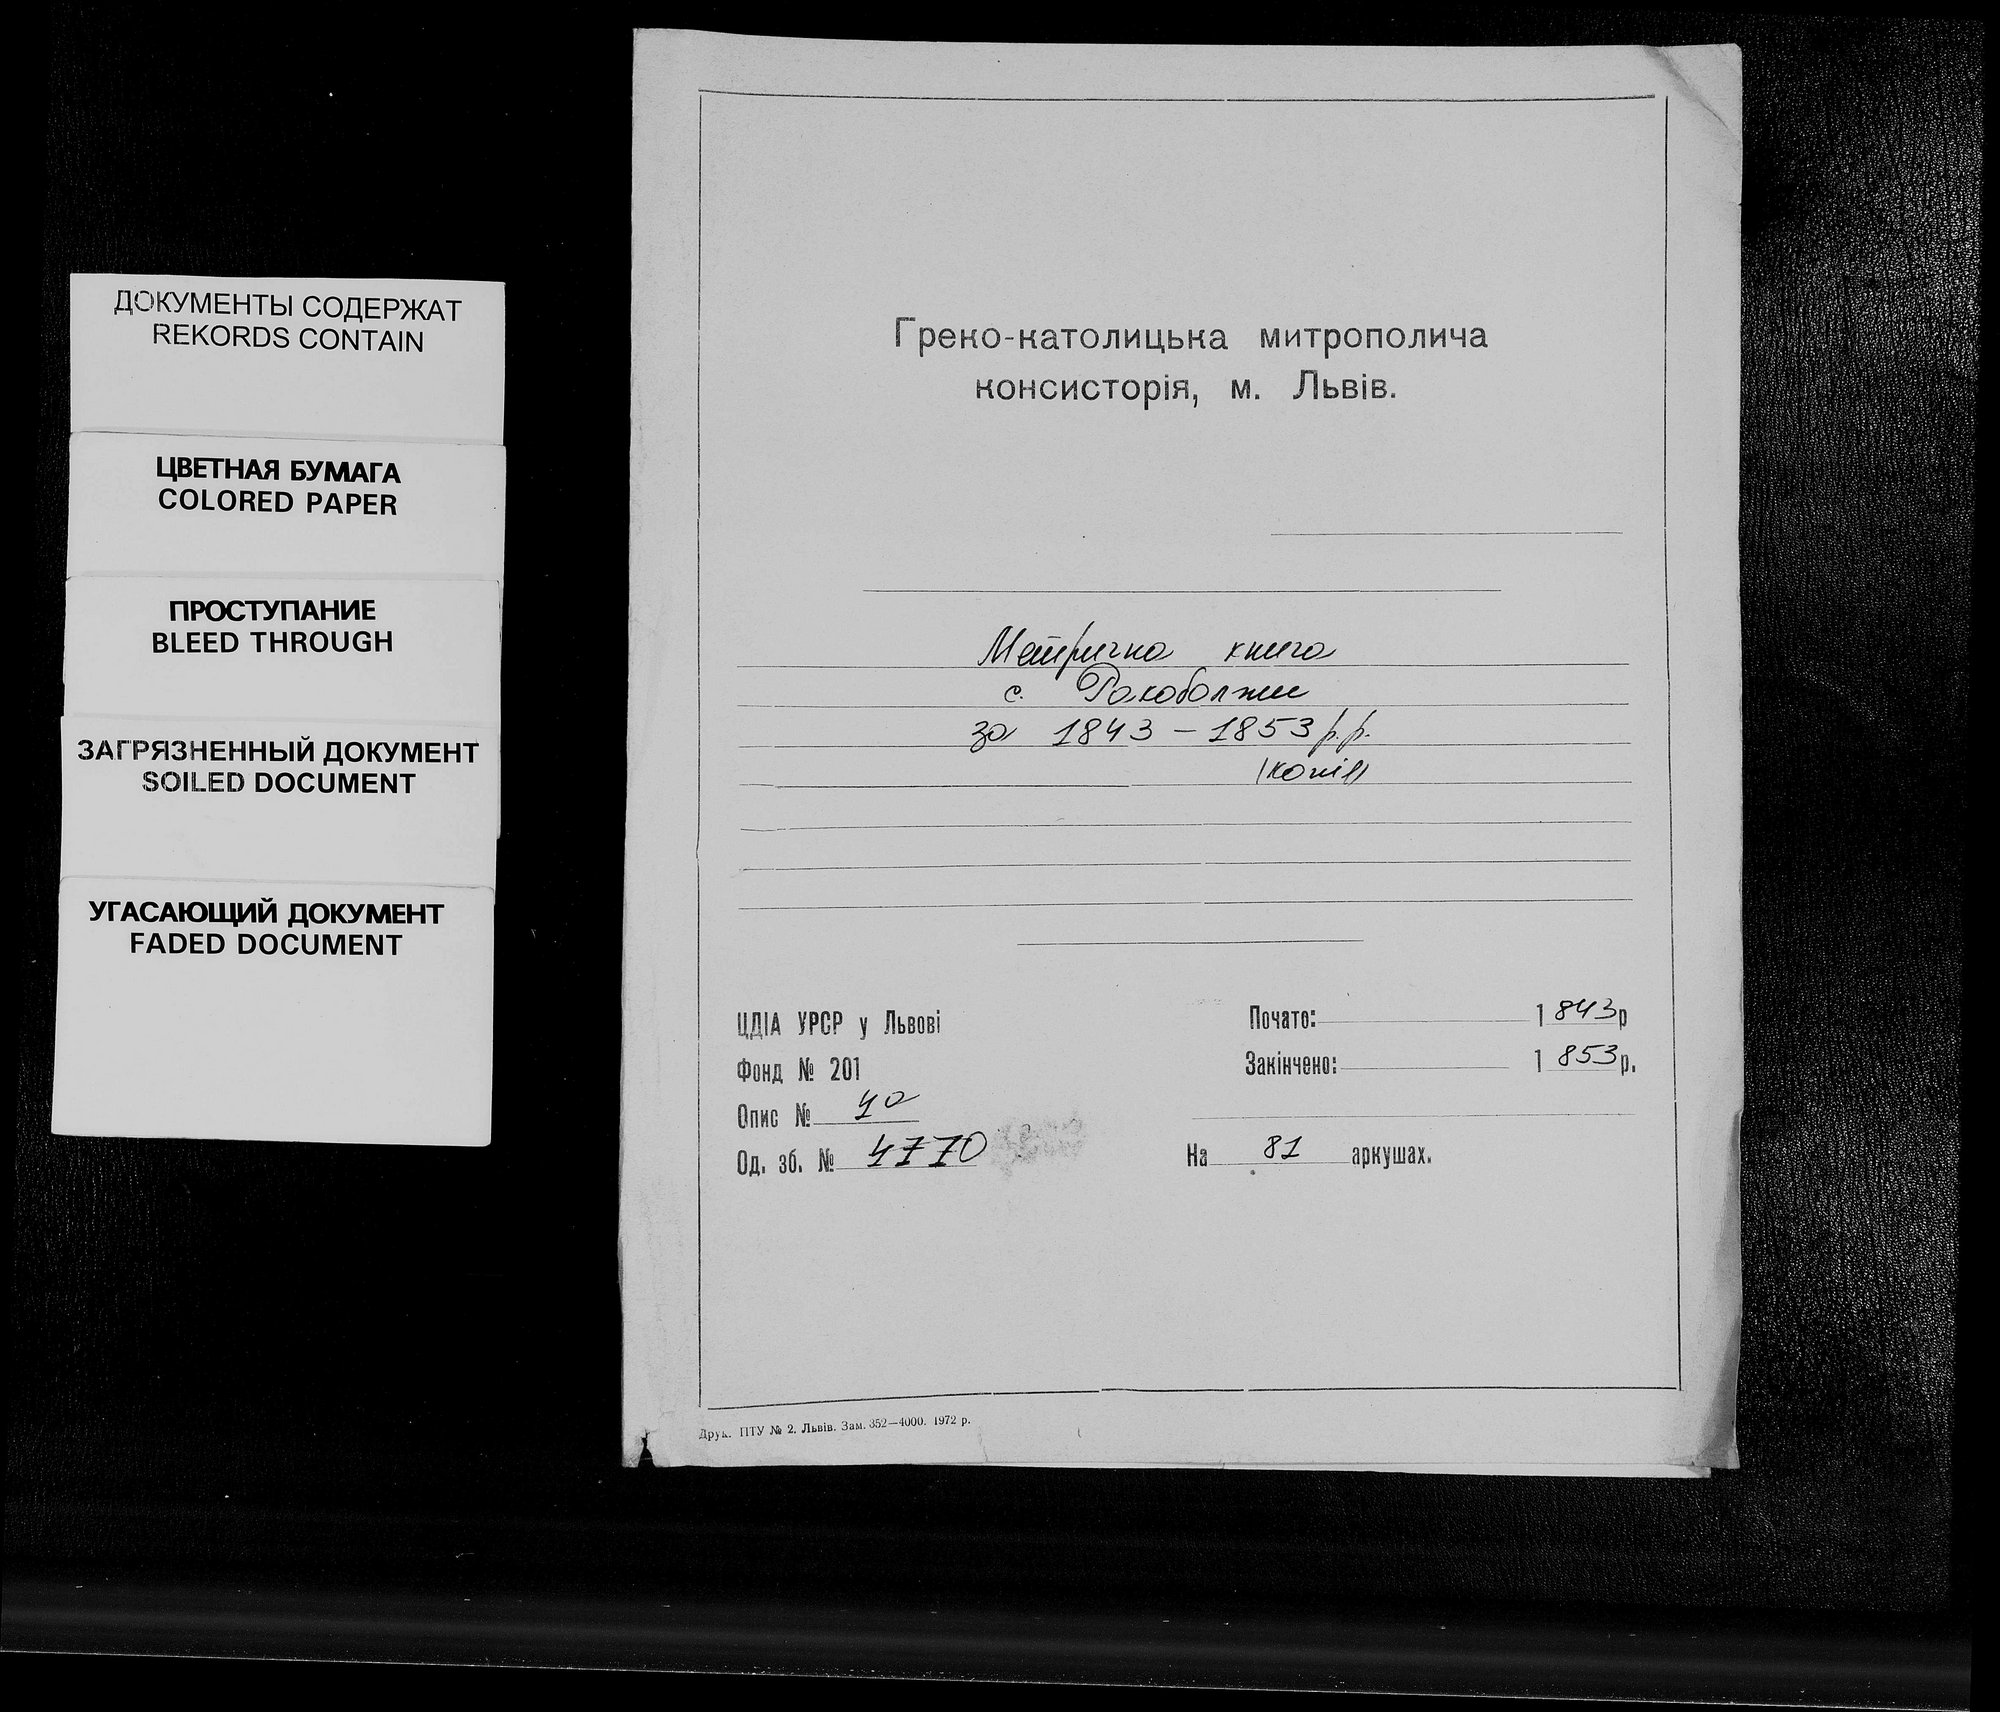 ДОКУМЕНТЫ СОДЕРЖАТ
REKORDS CONTAIN
ЦВЕТНАЯ БУМАГА
COLORED PAPER
ПРОСТУПАНИЕ
BLEED THROUGH
ЗАГРЯЗНЕННЫЙ ДОКУМЕНТ
SOILED DOCUMENT
УГАСАЮЩИЙ ДОКУМЕНТ
FADED DOCUMENT
Греко-католицька митрополича
консисторія, м. Львів.
Метрична книга
с. Ракоболжи
за 1843 – 1853 р.р.
(копія)
ЦДІА УРСР у Львові
Фонд № 201
Опис № 4а
Од. зб. № 4770
Почато: 1843р
Закінчено: 1853р.
На 81 аркушах.
Друк. ПТУ № 2. Львів. Зам. 352—4000. 1972 р.